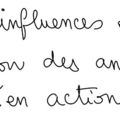 influences
on des an
en action